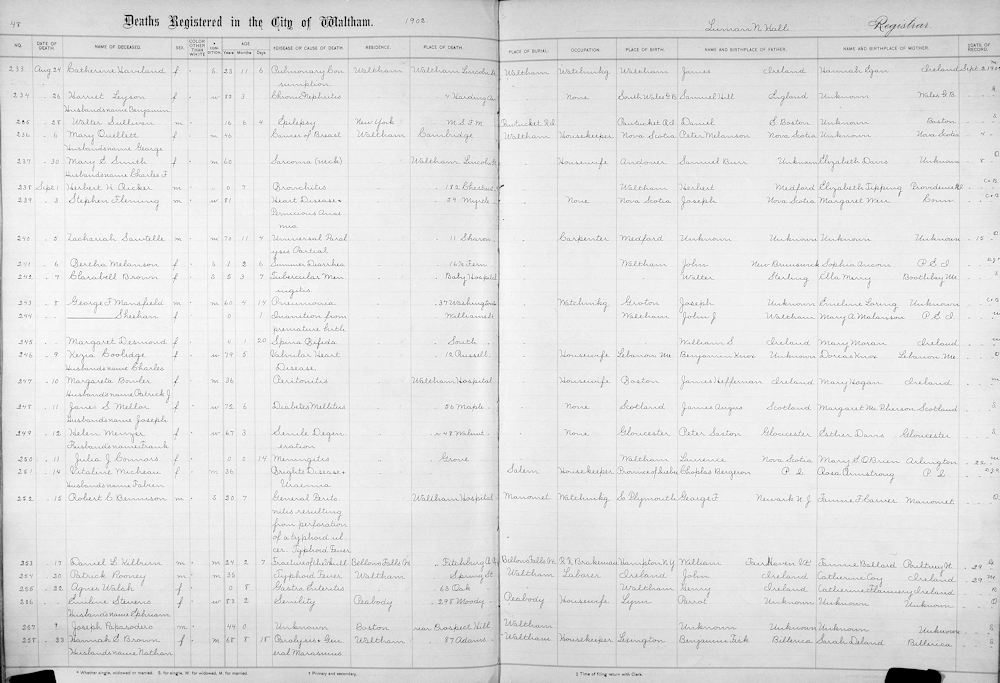 48 Deaths Registered in the City of Waltham. 1902 Registrar
NO. DATE OF DEATH. NAME OF DECEASED. SEX. COLOR OTHER THAN WHITE CONDITION AGE Years Months Days †DISEASE OR CAUSE OF DEATH. RESIDENCE. PLACE OF DEATH. PLACE OF BURIAL. OCCUPATION. PLACE OF BIRTH. NAME AND BIRTHPLACE OF FATHER. NAME AND BIRTHPLACE OF MOTHER. DATE OF RECORD.
233 Aug 24 Catherine Haveland f S 23 11 6 Pulmonary Con Waltham Waltham Lincoln St Waltham Watchmkg Waltham James Ireland Hannah Egan Ireland Sept 2
sumption
234 26 Harriet Leyson f w 83 3 Chron Nephritis 4 Harding Av None South Wales G B Samuel Hill England Unknown Wales G B
Husbands name Benjamin
235 28 Walter Sullivan m 16 6 4 Epilepsy New York M.S.F.M. Pawtucket R.I. Pawtucket R.I. Daniel Boston Unknown Boston
236 6 Mary Ouellett f m 46 Cancer of Breast Waltham Cambridge Waltham Housekeeper Nova Scotia Peter Melanson Nova Scotia Unknown Nova Scotia 4
Husbands name George
237 30 Mary E Smith f m 60 Sarcoma (neck) Waltham Lincoln St Housewife Andover Samuel Burr Unknown Elizabeth Davis Unknown 8
Husbands name Charles F
238 Sept 1 Herbert H Ricker m 0 7 Bronchitis 182 Chestnut Waltham Herbert Medford Elizabeth Tipping Providence R.I.
239 3 Stephen Fleming m w 81 Heart Disease + 24 Myrtle None Nova Scotia Joseph Nova Scotia Margaret Weir
Pernicious Anae
mia
240 5 Zachariah Sawtelle m m 70 11 4 Universal Paral 11 Sharon Carpenter Medford Unknown Unknown Unknown Unknown 15
ysis Partial
241 6 Bertha Melanson f S 1 2 6 Summer Diarrhea 16½ Fern Waltham John New Brunswick Sophia Aucoin P.E.I
242 7 Clarabell Brown f S 5 3 7 Tubercular Men Baby Hospital Walter Sterling Ella Merry Boothbay Me
ingitis
243 8 George F Mansfield m m 60 4 14 Pneumonia 37 Washington Watchmkg Groton Joseph Unknown Emeline Loring Unknown
244 Sheehan f 0 1 Inanition from Williams St Waltham John J Waltham Mary A Melanson P.E.I
premature birth
245 Margaret Desmond f 0 1 20 Spina Bifida South William S Ireland Mary Moran Ireland
246 9 Kezia Coolidge f w 79 5 Valvular Heart 12 Russell Housewife Lebanon Me Benjamin Knox Unknown Dorcas Knox Lebanon Me
Husbands name Charles Disease
247 10 Margareta Bowler f m 36 Peritonitis Waltham Hospital Housewife Boston James Heffernan Ireland Mary Hogan Ireland
Husbands name Patrick J
248 11 Jane S Mellor f w 72 6 Diabetes Mellitus 56 Maple None Scotland James Angus Scotland Margaret McPherson Scotland
Husbands name Joseph
249 12 Helen w 67 3 Senile Degen 48 Walnut None Gloucester Peter Saxton Gloucester Esther Davis Gloucester
Husbands name Frank eration
250 11 Julia J Connors f 0 14 Meningitis Grove Waltham Lawrence Nova Scotia Mary E O'Brien Arlington 25
251 14 Vitaline Micheau f m 36 Brights Disease + Salem Housekeeper Province of Quebec Bergeron P.Q Rosa Armstrong P.Q
Husbands name Fabien Uraemia
252 15 Robert C Bennison m S 20 7 General Perito Waltham Hospital Manomet Watchmkg So Plymouth George F Newark N J Fannie F Carver Manomet
nitis resulting
from perforation
of a typhoid ul
cer. Typhoid Fever
253 17 Daniel L Kilburn m m 24 2 7 Fracture of the Skull Bellows Falls Vt Fitchburg Bellows Falls Vt R.R. Brakeman Hampton N Y William Fair Haven Vt Fannie Ballard Poultney Vt 29
254 20 Patrick Rooney m m 35 Typhoid Fever Waltham Spring St Waltham Laborer Ireland John Ireland Catherine Coy Ireland 29
255 22 Agnes Walsh f 0 8 Gastro Enteritis 63 Oak Waltham Henry Ireland Catherine Flannery Ireland
256 Emeline Stevens f w 83 2 Senility Peabody 298 Moody Peabody Housewife Lynn Parrot Unknown Unknown Unknown
Husbands name Ephraim
257 ? Joseph Raposodero m 44 0 Unknown Boston near Prospect Hill Waltham Unknown Unknown Unknown Unknown
258 23 Hannah S Brown f m 68 8 15 Paralysis + Gen Waltham 87 Adams Waltham Housekeeper Lexington Benjamin Fisk Billerica Sarah Billerica
Husbands name Nathan eral Marasmus
* Whether single, widowed or married. S. for single, W. for widowed, M. for married. † Primary and secondary. ‡ Time of filing return with Clerk.